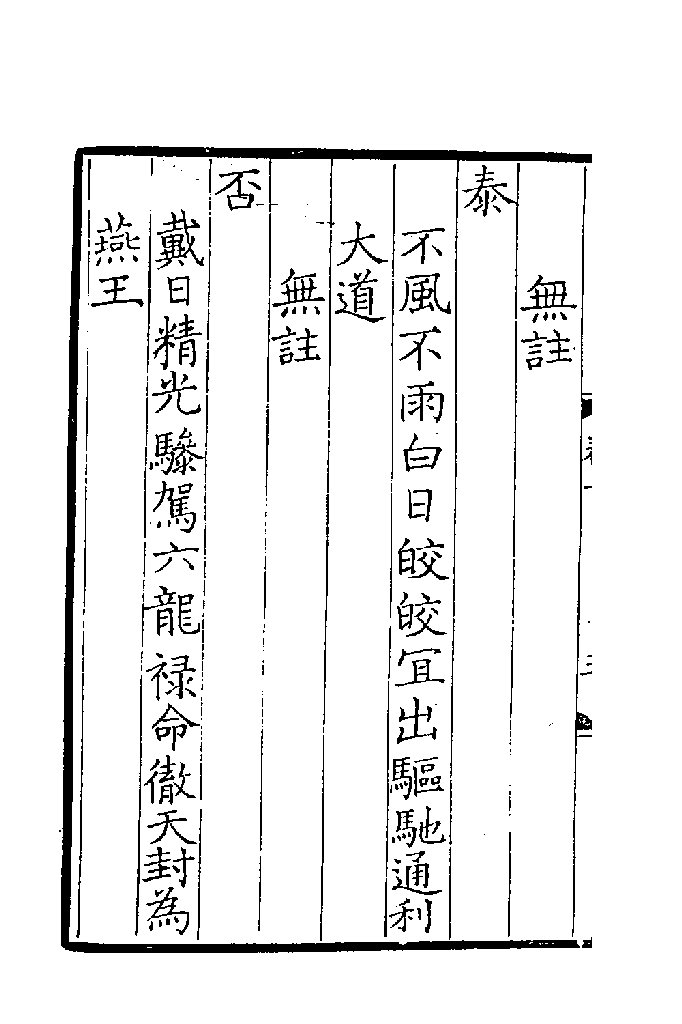 無註
泰
不風不雨白日皎皎冝出驅馳通利
大道
無註
否
戴日精光驂駕六龍禄命徹天封為
燕王